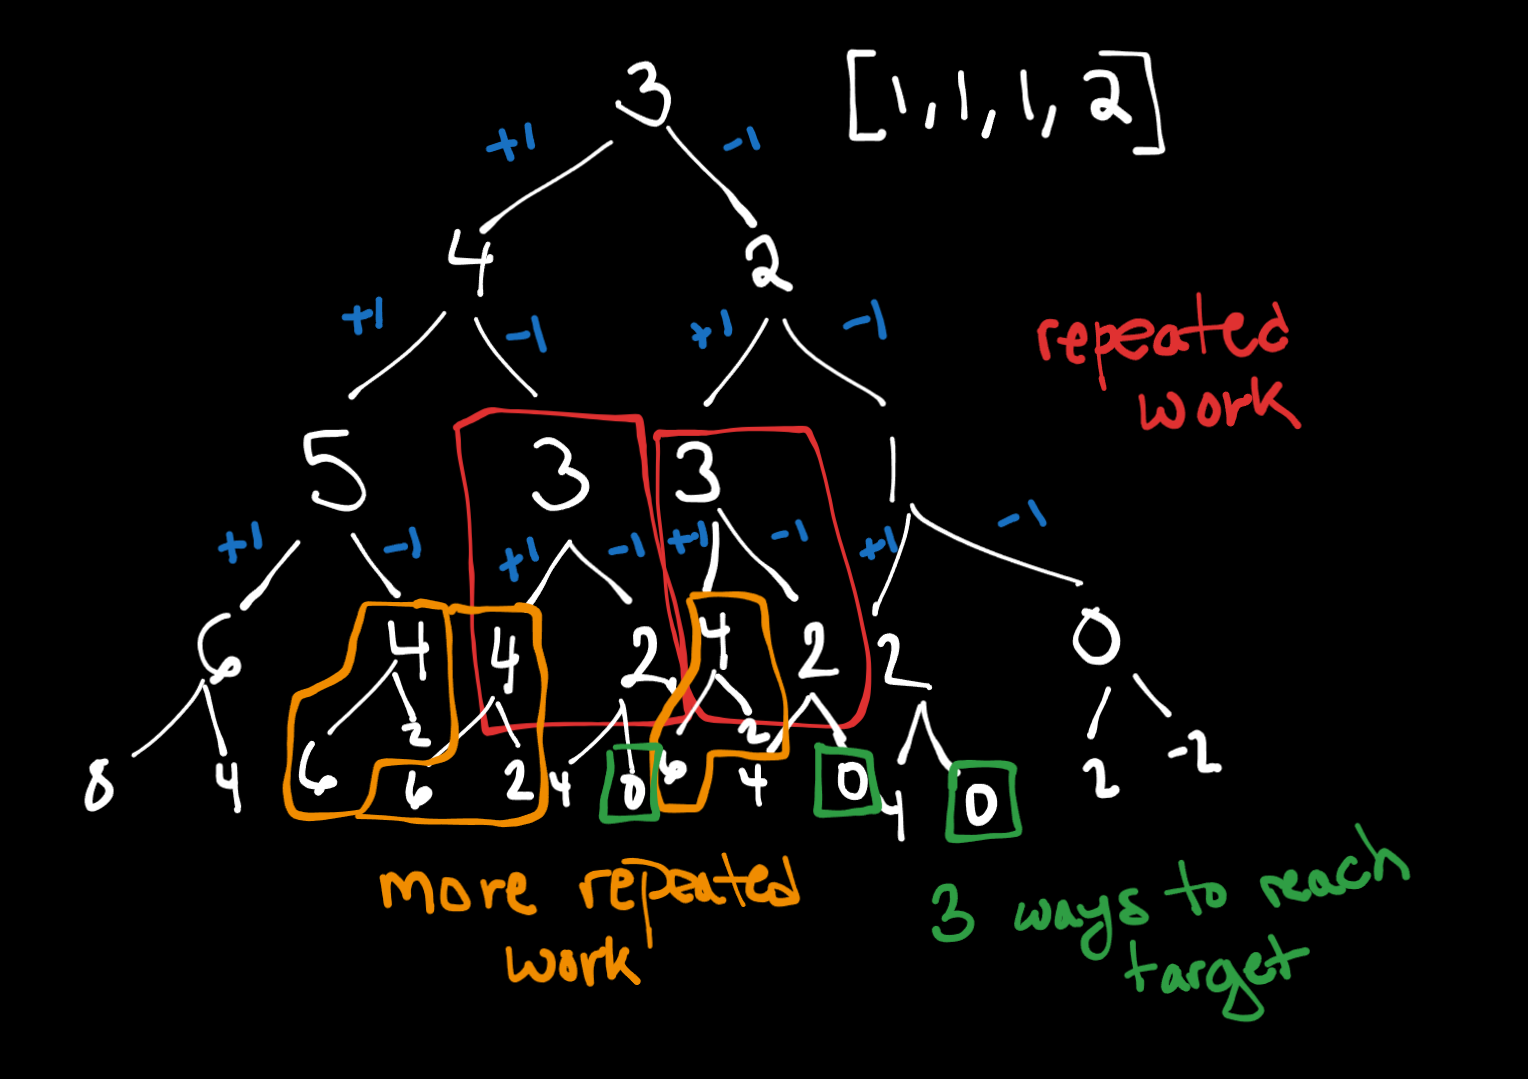 3 [1,1,1,2]
+1 -1
4 2
+1 -1 +1 -1
repeated
work
5 3 3 1
+1 -1 +1 -1 +1 -1 +1 -1
6 4 4 2 4 2 2 0
8 4 6 2 6 2 4 0 6 2 4 0 4 0 2 -2
more repeated
work
3 ways to reach
target